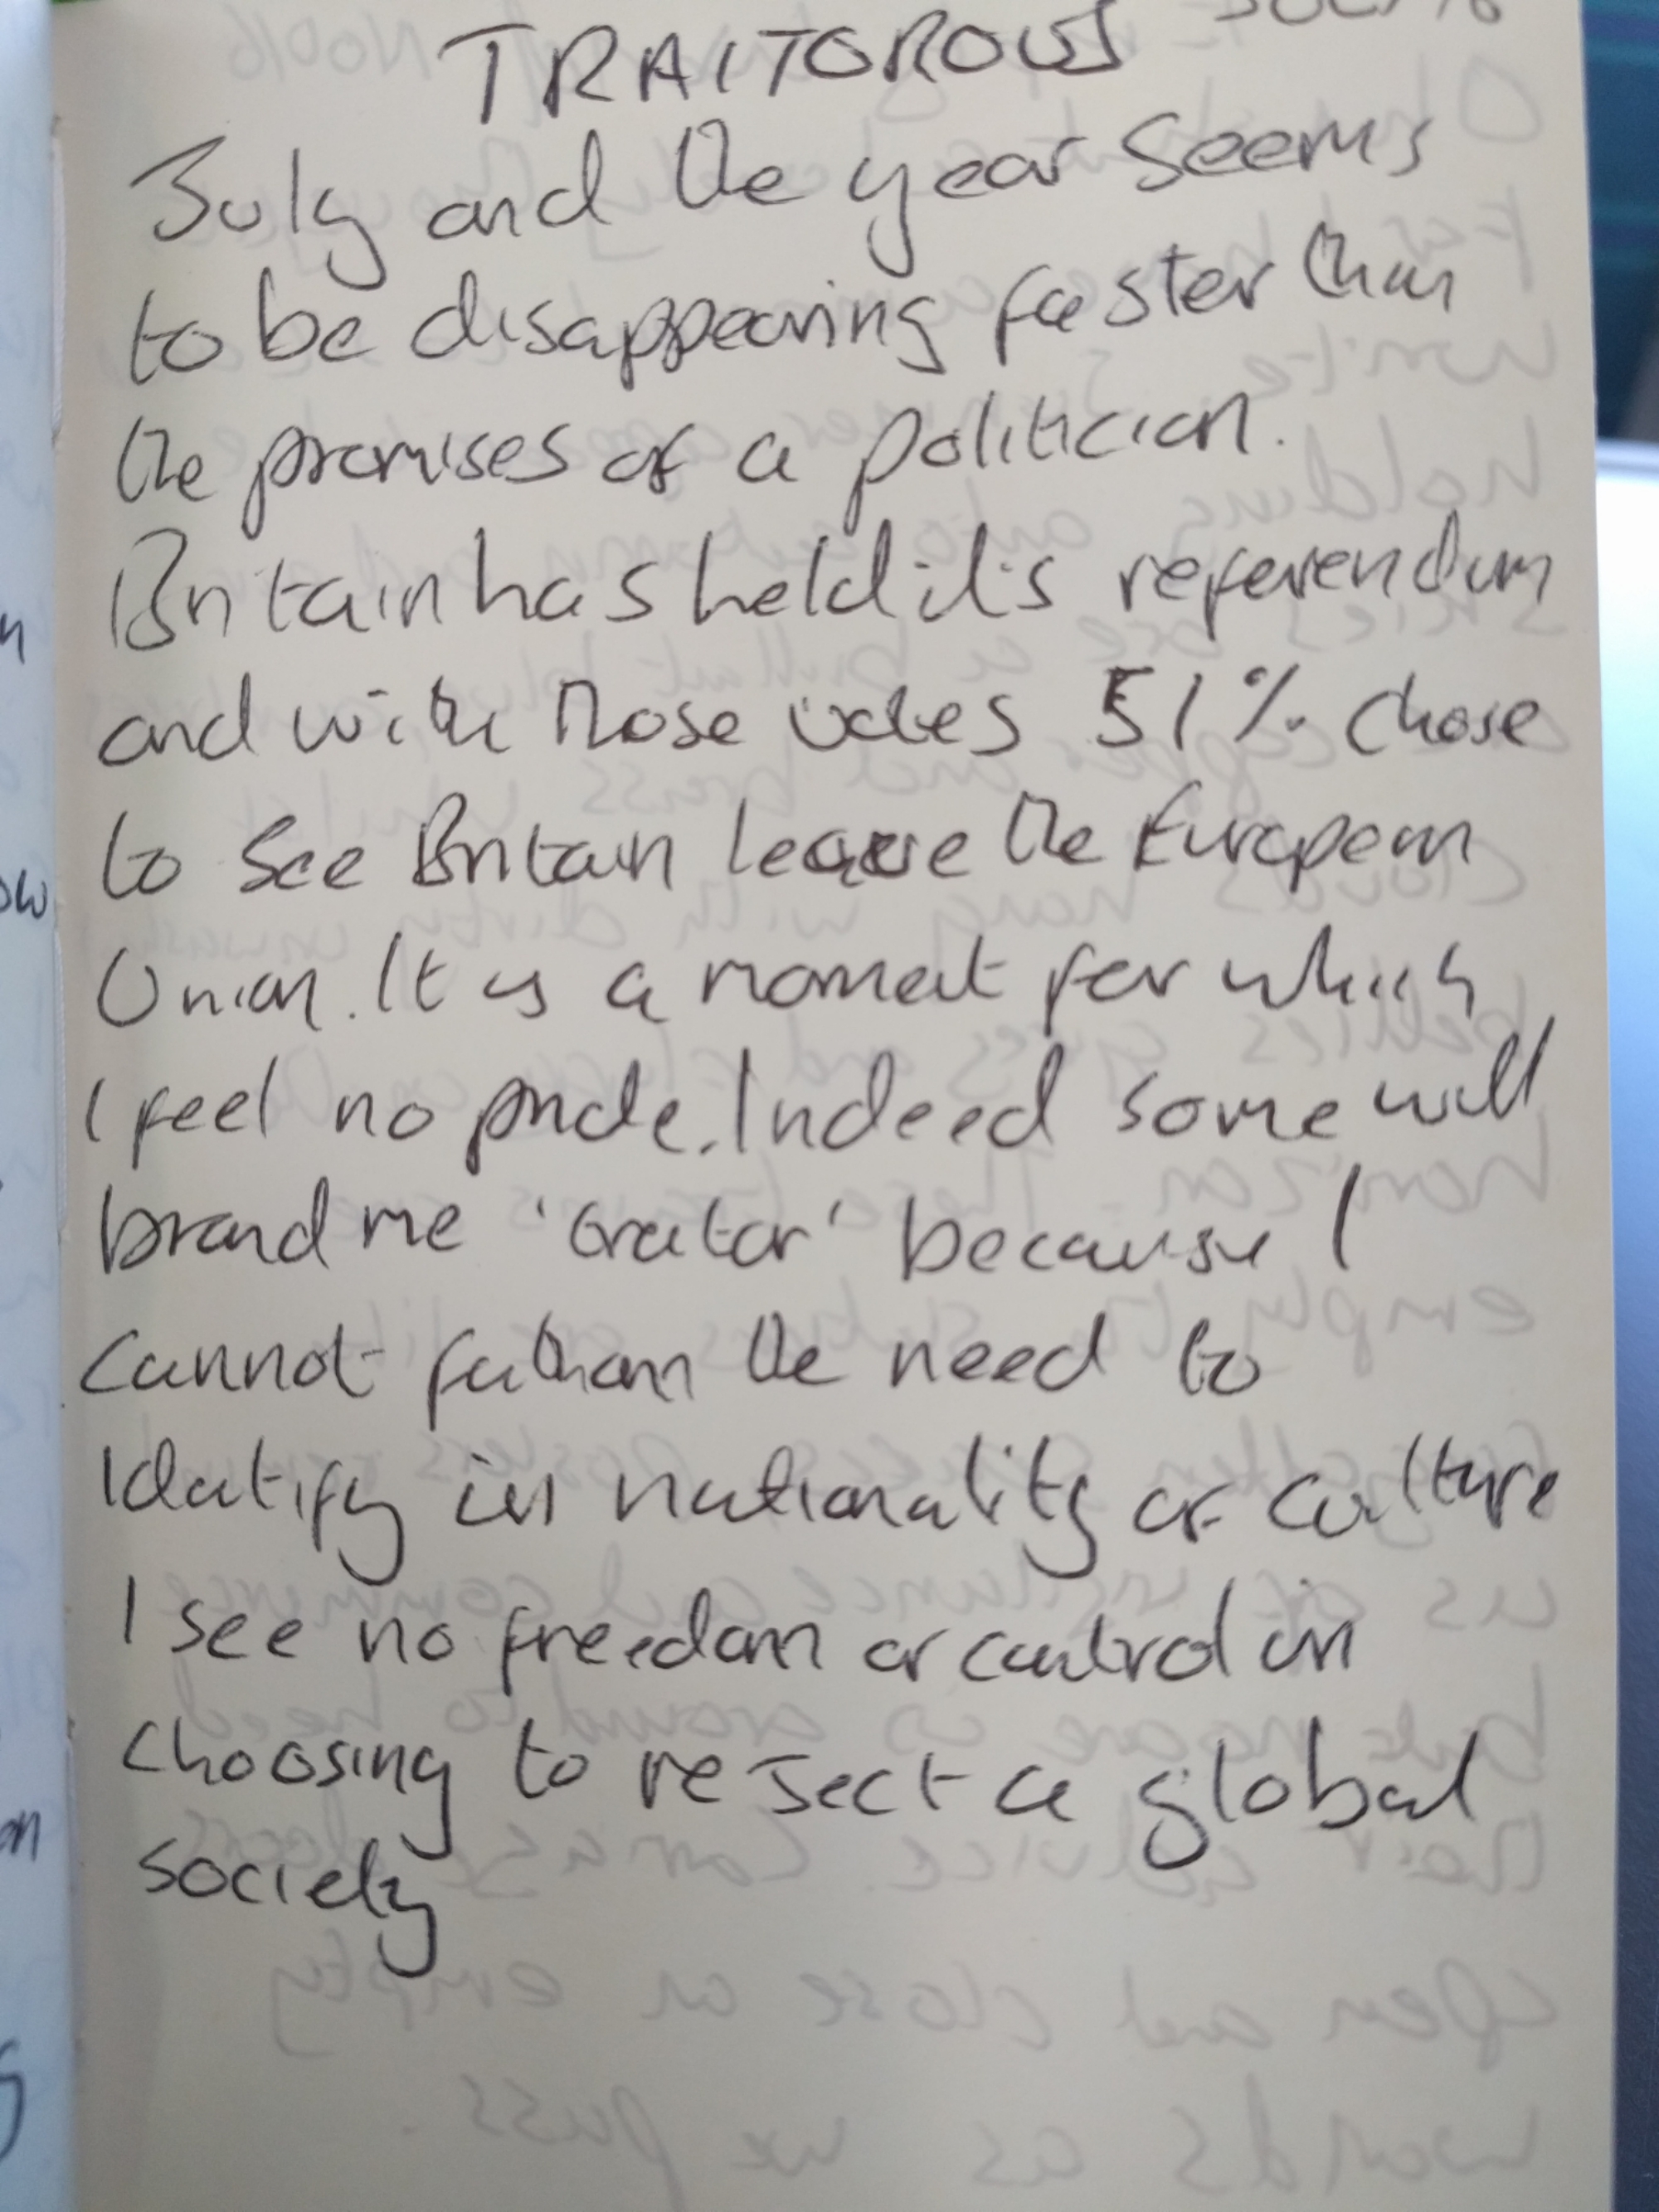 TRAITOROUS
July and the year seems
to be disappearing faster than
the promises of a politician.
Britain has held it's referendum
and with those votes 51% chose
to see Britain leave the European
Union. It is a moment for which
I feel no pride. Indeed some will
brand me 'traitor' because I
cannot fathom the need to
identify in nationality or culture
I see no freedom or control in
choosing to reject a global
society